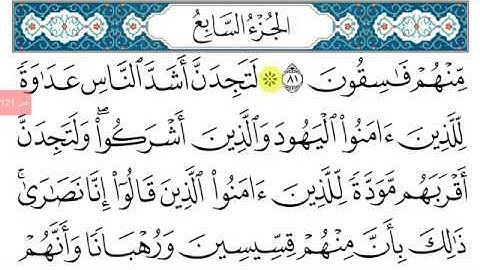 الجُزْءُ السَّابِعُ
مِّنْهُمْ فَـٰسِقُونَ ٨١ ۞ لَتَجِدَنَّ أَشَدَّ ٱلنَّاسِ عَدَٰوَةً
لِّلَّذِينَ ءَامَنُوا۟ ٱلْيَهُودَ وَٱلَّذِينَ أَشْرَكُوا۟ ۖ وَلَتَجِدَنَّ
أَقْرَبَهُم مَّوَدَّةً لِّلَّذِينَ ءَامَنُوا۟ ٱلَّذِينَ قَالُوٓا۟ إِنَّا نَصَـٰرَىٰ ۚ
ذَٰلِكَ بِأَنَّ مِنْهُمْ قِسِّيسِينَ وَرُهْبَانًا وَأَنَّهُمْ
ص 121